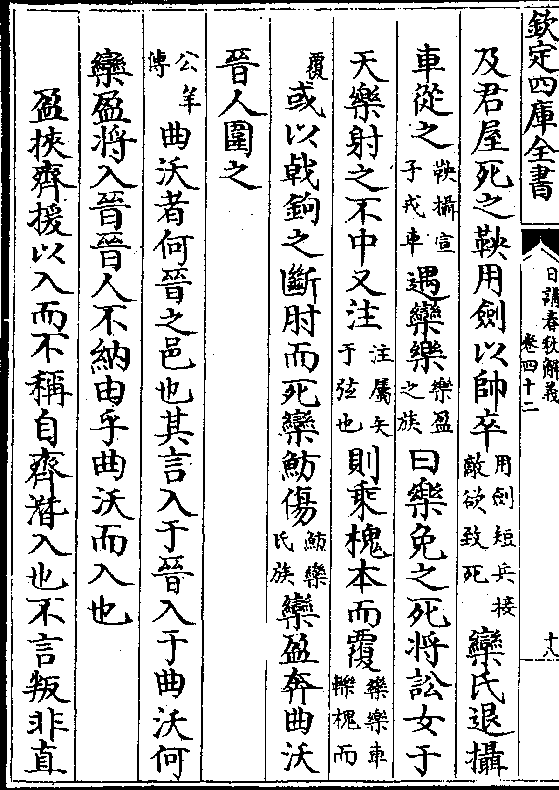 欽定四庫全書
日講春秋解義
卷四十二
十八
及君屋死之鞅用劍以帥卒用劍短兵接敵欲致死欒氏退攝
車從之鞅攝宣子戎車遇欒樂欒盈之族曰樂免之死將訟女于
天樂射之不中又注注屬矢于弦也則乗槐本而覆欒樂車轢槐而
覆或以戟鉤之斷肘而死欒魴傷魴欒氏族欒盈奔曲沃
晉人圍之
公羊傳曲沃者何晉之邑也其言入于晉入于曲沃何
欒盈将入晉晉人不納由乎曲沃而入也
盈挾齊援以入而不稱自齊潛入也不言叛非直